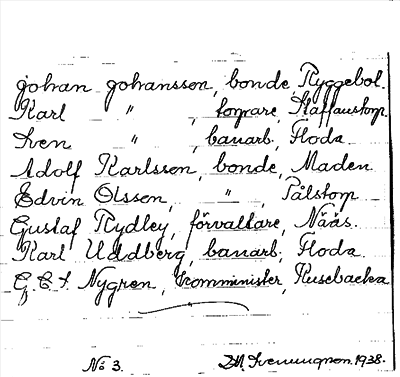 Johan Johansson, bonde, Ryggebol.
Karl " , torpare, Staffanstorp.
Sven " , banarb, Floda.
Adolf Karlsson, bonde, Maden.
Edvin Olssen, " , Pålstorp
Gustaf Rydley, förvaltare, Nääs.
Karl Uddberg, banarb, Floda.
G. E. S. Nygren, Kromminister, Kusebacka
No 3. 1938.